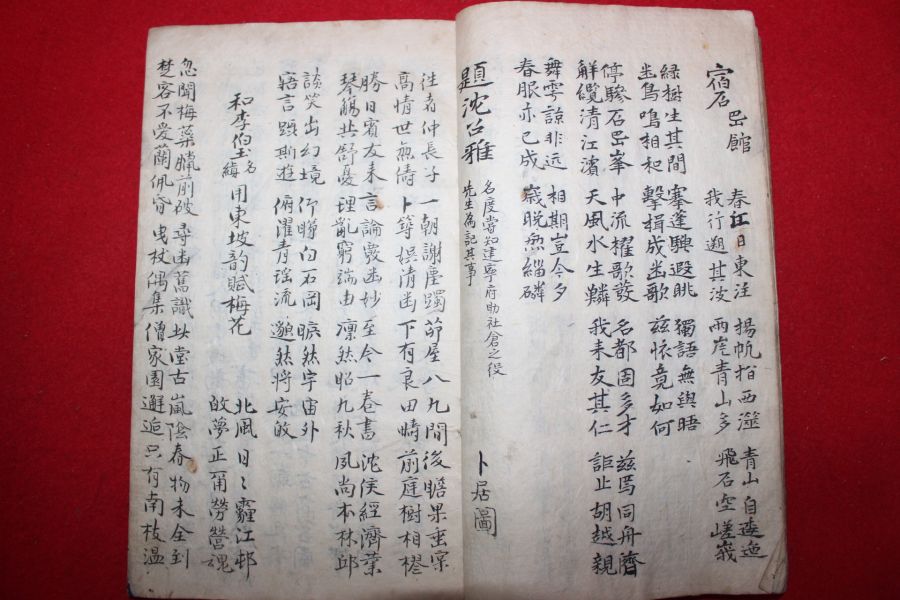 宿石岊館
春江日東注 揚帆指西澨 青山自逶迤
我行遡其波 兩岸青山多 飛石空嵯峨
綠樹生其間 蹇蓬興遐眺 獨語無與晤
幽鳥鳴相和 擊楫成幽歌 玆懷竟如何
停驂石岊峯 中流櫂歌發 名都固多才 玆焉同舟濟
觧纜清江濱 天風水生鱗 我来友其仁 詎止胡越親
舞雩諒非远 相期豈今夕
春服亦已成 歲晚無緇磷
題沈公雅 名度嘗知建寧府助社倉之役 先生為記其事 卜居圖
徃者仲長子 一朝謝塵躅 茆屋八九間 後瞻果垂
高情世無儔 卜築娛清幽 下有良田疇 前庭樹相樛
勝日賓友来 言論數幽妙 至今一卷書 沈侯經濟業
琴觴共舒憂 理亂窮端由 凛然昭九秋 夙尚亦林邱
談笑出幻境 仰聯白石岡 曠然宇宙外
寤言顕斯遊 俯濯青瑶流 邈然將安攸
和李伯玉 名縝 用東坡韵賦梅花
北風日〻霾江邨
皈夢正爾勞營魂
忽聞梅蘂臘前破 尋幽舊識此堂古 嵐陰春物未全到
楚客不爱蘭佩昏 曳杖偶集僧家園 邂逅只有南枝温